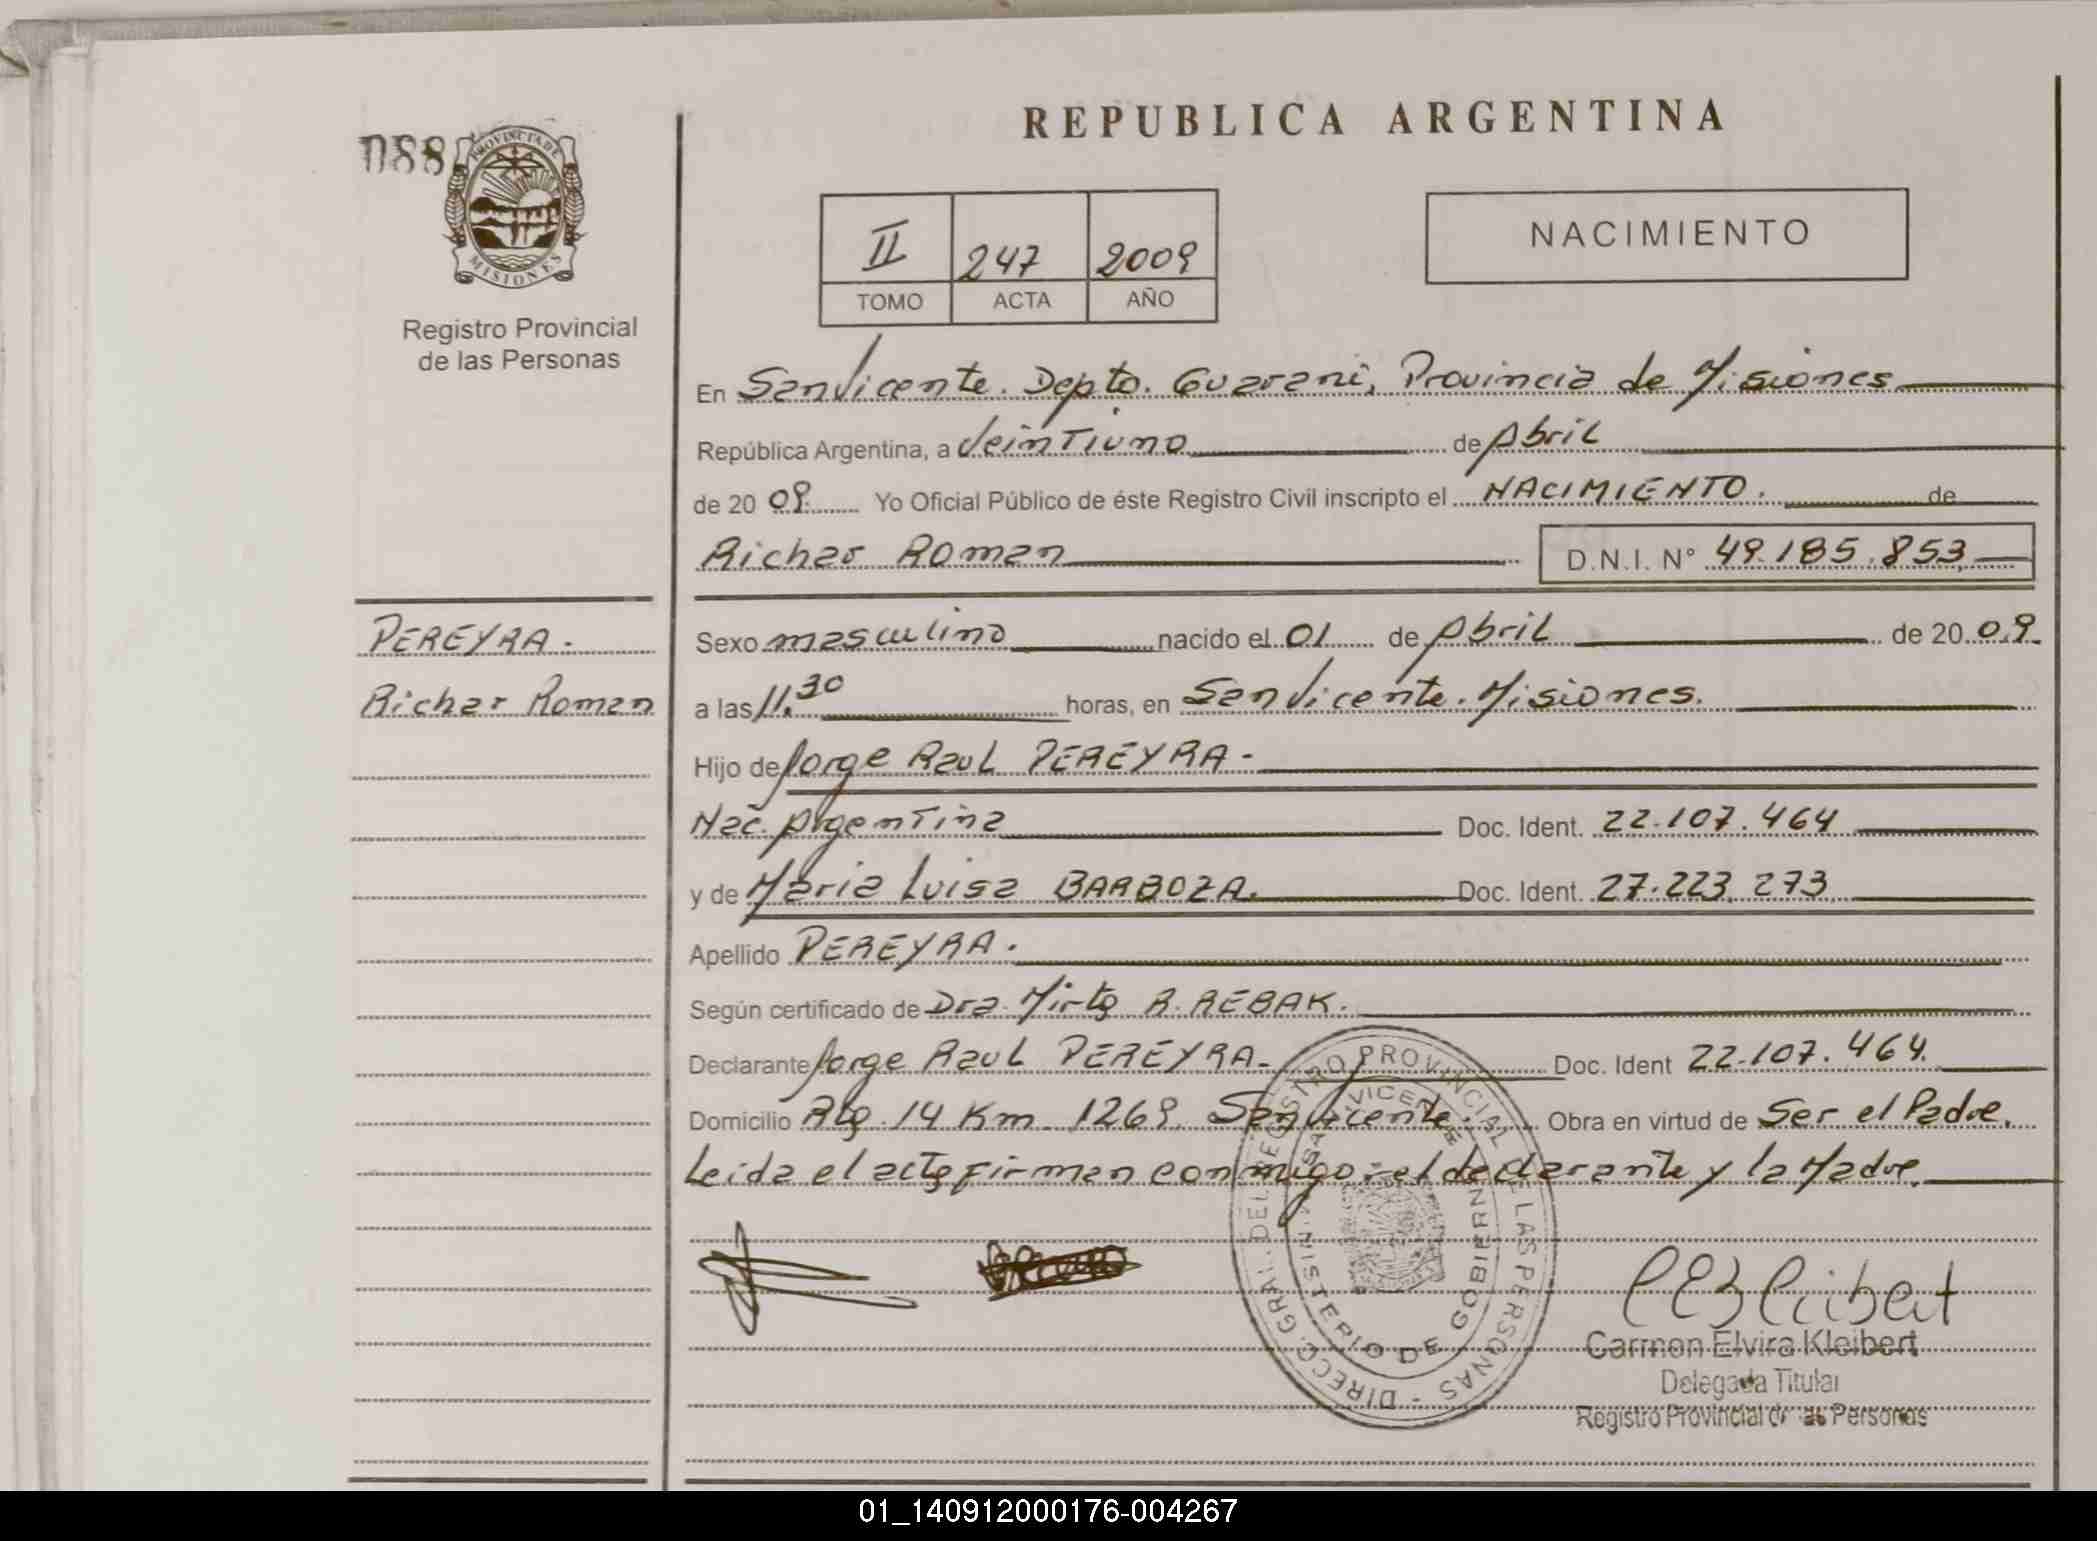 088
PROVINCIA DE
MISIONES
Registro Provincial
de las Personas
REPUBLICA ARGENTINA
II 247 2009
TOMO ACTA AÑO
NACIMIENTO
En San Vicente. Depto. Guarani, Provincia de Misiones
República Argentina, a Veintiuno de Abril
de 20 09 Yo Oficial Público de éste Registro Civil inscripto el NACIMIENTO. de
Richar Roman D.N.I. N° 49.185.853
PEREYRA.
Richar Roman
Sexo masculino nacido el 01 de Abril de 20 09.
a las 11.30 horas, en San Vicente. Misiones.
Hijo de Jorge Raul PEREYRA-
Nac. Argentina Doc. Ident. 22.107.464
y de Maria Luisa BARBOZA. Doc. Ident. 27.223.273
Apellido PEREYRA.
Según certificado de Dra. Mirta R. REBAK.
Declarante Jorge Raul PEREYRA- Doc. Ident 22.107.464.
Domicilio Rta. 14 Km. 1269. San Vicente. Obra en virtud de Ser el Padre.
Leida el acta firman conmigo, el declarante y la Madre.
DIRECC. GRAL. DEL REGISTRO PROVINCIAL DE LAS PERSONAS -
SAN VICENTE
MINISTERIO DE GOBIERNO
CEKleibert
Carmen Elvira Kleibert
Delegada Titular
Registro Provincial de las Personas
01_140912000176-004267